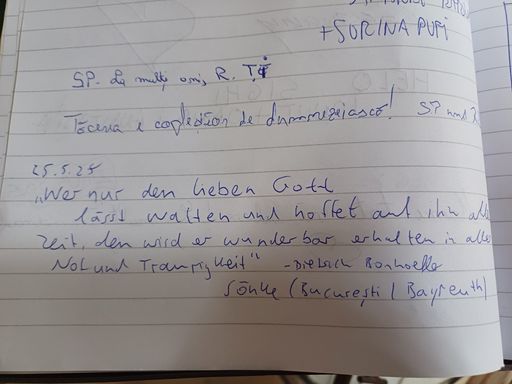 +SORINA PUPI
SP. La mulți ani, R. T.
Tăcerea e copleșitor de dumnezeiască! SP und
25.5.25
„Wer nur den lieben Gott
lässt walten und hoffet auf ihn alle
Zeit, den wird er wunderbar erhalten in aller
Not und Traurigkeit" - Dietrich Bonhoeffer
Sönke (București / Bayreuth)